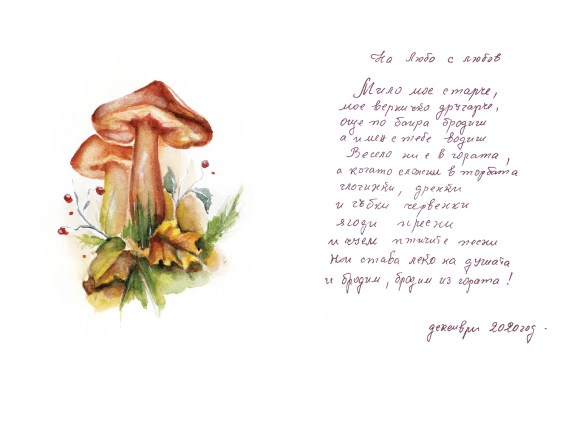 На Любо с любов
Мило мое старче,
мое верничко другарче,
още по баира бродиш
а и мен с тебе водиш
Весело ни е в гората,
а когато сложим в торбата
глогинки, дренки
и гъбки червенки
ягоди пресни
и чуем птичите песни
Ни става леко на душата
и бродим, бродим из гората!
декември 2020год.